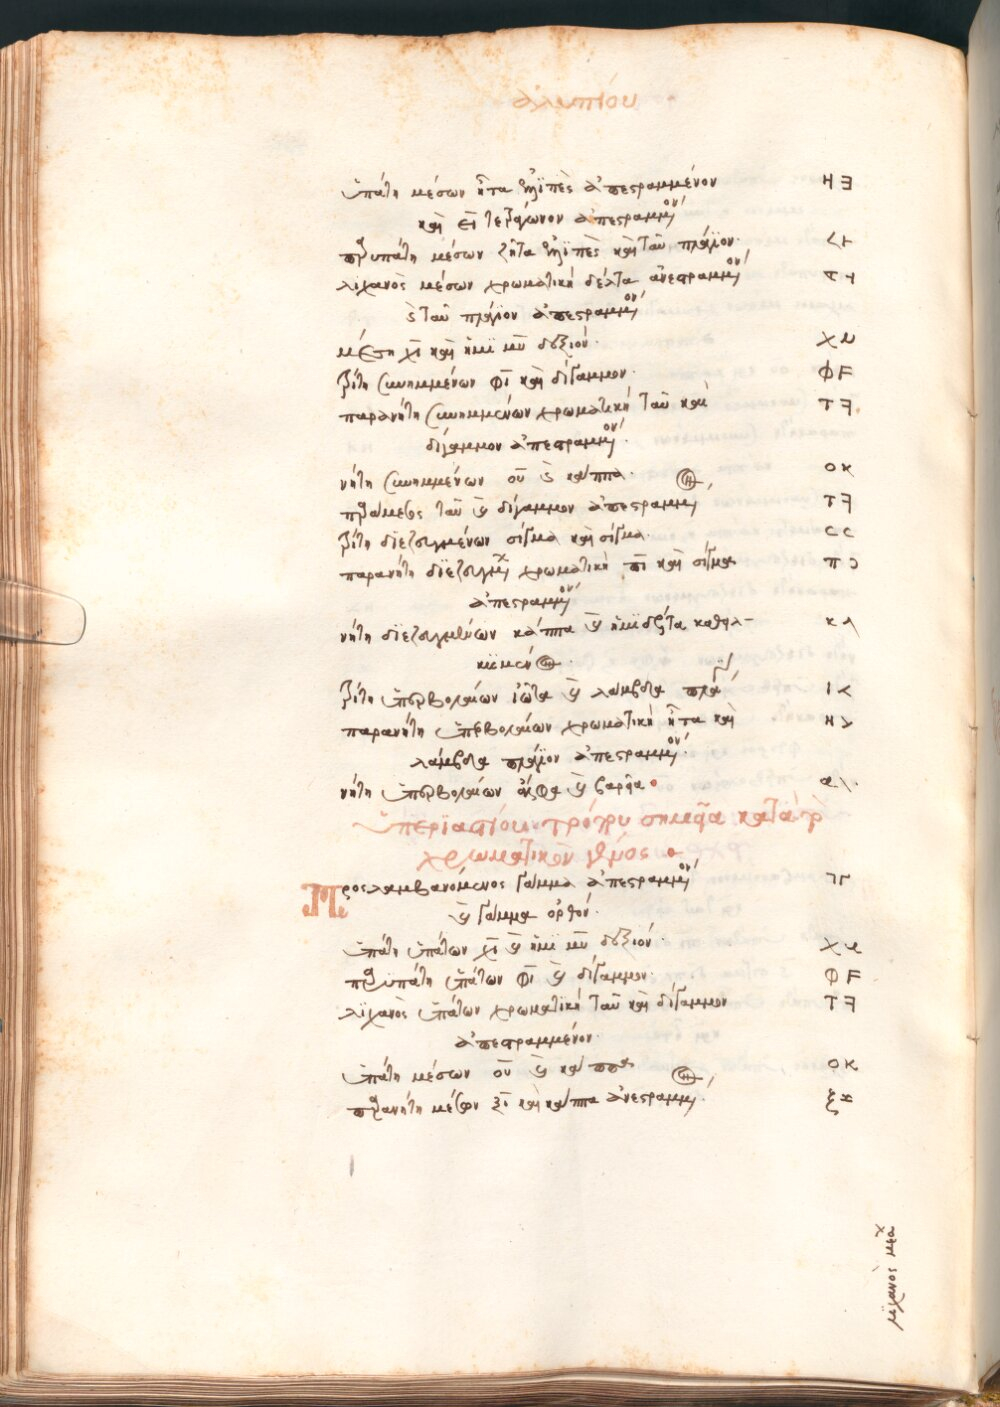 ἀλυπίου
ὑπάτη μέσων ἦτα ἐλλιπὲς ἀπεστραμμένον Η Ǝ
καὶ εἶ τετράγωνον ἀπεστραμμένον
παρυπάτη μέσων ζῆτα ἐλλιπὲς καὶ ταῦ πλάγιον
λιχανὸς μέσων χρωματικὴ δέλτα ἀνεστραμμένον
καὶ ταῦ πλάγιον ἀπεστραμμένον
μέση χῖ καὶ ἥμι μῦ δεξιόν
τρίτη συνημμένων φῖ καὶ δίγαμμον Φ F
παρανήτη συνημμένων χρωματικὴ ταῦ καὶ Τ ꟻ
δίγαμμον ἀπεστραμμένον
νήτη συνημμένων οὖ καὶ κάππα Ο Κ
παράμεσος ταῦ καὶ δίγαμμον ἀπεστραμμένον Τ ꟻ
τρίτη διεζευγμένων σίγμα καὶ σίγμα C C
παρανήτη διεζευγμένων χρωματικὴ πῖ καὶ σίγμα Π Ɔ
ἀπεστραμμένον
νήτη διεζευγμένων κάππα καὶ ἥμι δέλτα καθει-
κυσμένον
τρίτη ὑπερβολαίων ἰῶτα καὶ λάμβδα πλάγιον Ι <
παρανήτη ὑπερβολαίων χρωματικὴ ἦτα καὶ Η >
λάμβδα πλάγιον ἀπεστραμμένον
νήτη ὑπερβολαίων ἄλφα καὶ βαρεῖα α \
ὑπεριαστίου τρόπου σημεῖα κατὰ τὸ
χρωματικὸν γένος
Προσλαμβανόμενος γάμμα ἀπεστραμμένον ⅂ Γ
καὶ γάμμα ὀρθόν
ὑπάτη ὑπάτων χῖ καὶ ἥμι μῦ δεξιόν
παρυπάτη ὑπάτων φῖ καὶ δίγαμμον Φ F
λιχανὸς ὑπάτων χρωματικὴ ταῦ καὶ δίγαμμον Τ ꟻ
ἀπεστραμμένον
ὑπάτη μέσων οὖ καὶ κάππα Ο Κ
παρανήτη μέσων ξῖ καὶ κάππα ἀνεστραμμένον
λιχανὸς